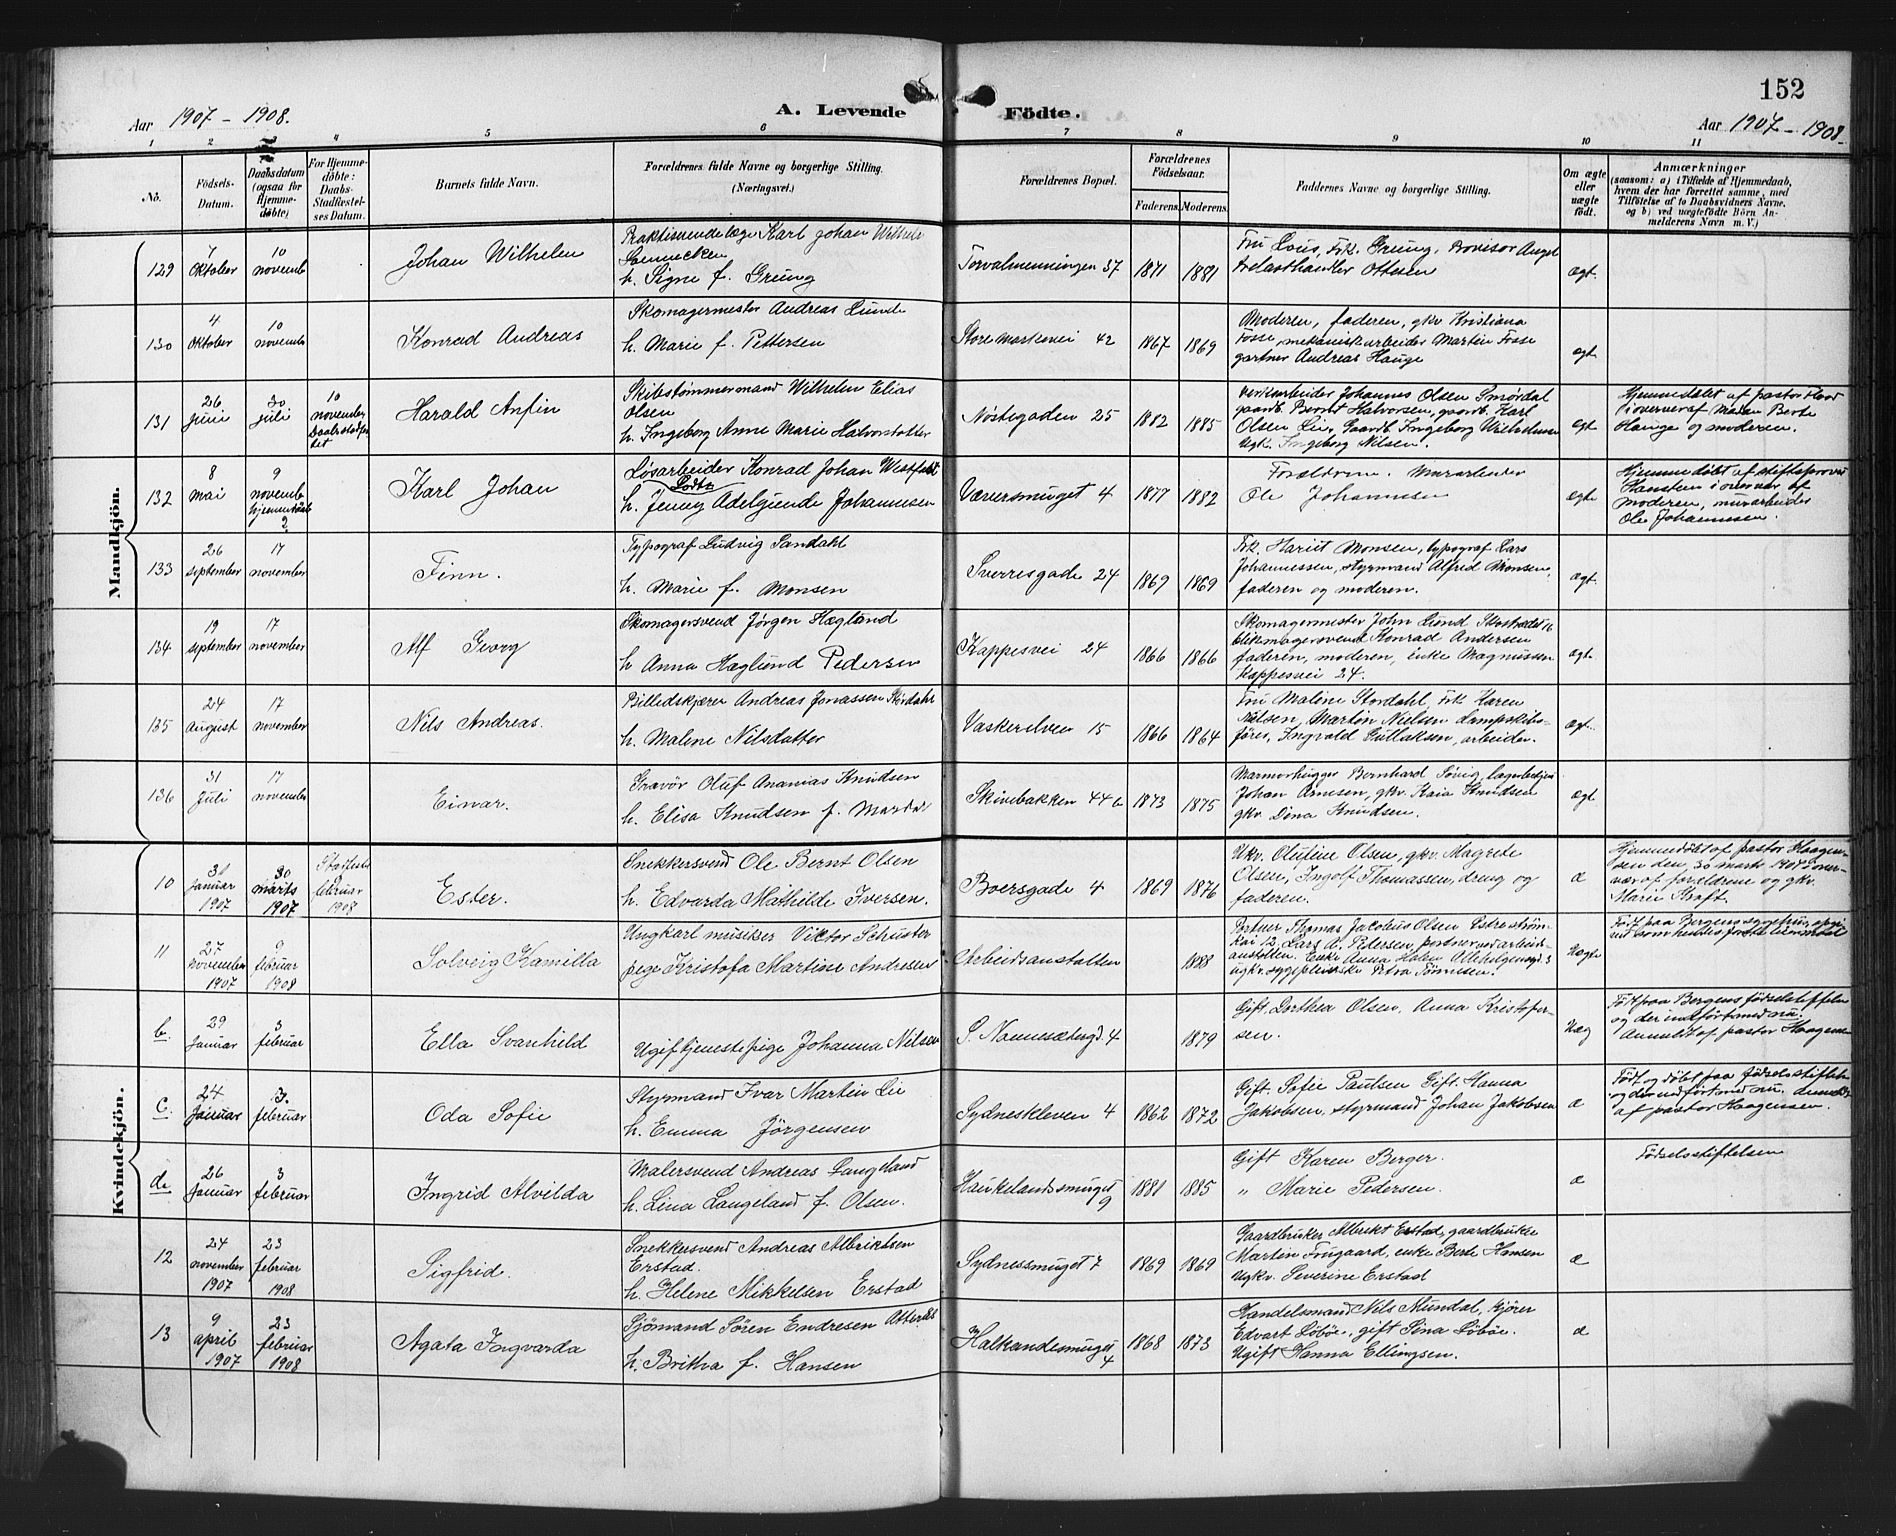 152
Aar 1907 – 1908.
A. Levende Födte.
Aar 1907 – 1908
1 2 3 4 5 6 7 8 9 10 11
No.
Födsels-Datum.
Daabsdatum (ogsaa for Hjemme-döbte)
For Hjemme-döbte: Daabs-Stadfæstel-ses Datum.
Barnets fulde Navn.
Forældrenes fulde Navne og borgerlige Stilling. (Næringsvei.)
Forældrenes Bopæl.
Forældrenes Födselsaar.
Faderens. Moderens.
Faddernes Navne og borgerlige Stilling.
Om ægte eller uægte födt.
Anmærkninger
(saasom: a) i Tilfælde af Hjemmedaab, hvem der har forrettet samme, med Tilföielse af to Daabsvidners Navne, og b) ved uægtefödte Börn An-melderens Navn m. V.)
Mandkjön.
129
7 Oktober
10 novemb
Johan Wilhelm
Praktiserende læge Karl Johan Wilhelm
Sonnecken
h. Signe f. Grung
Torvalmenningen 37
1871
1881
Fru Louis, Frk. Grung, Provisor Angel
Ottesen
ægt.
130
4 Oktober
10 novemb
Konrad Andreas
Skomagermester Andreas Lunde
h. Marie f. Pettersen
Store markevei 42
1867
1869
Moderen, faderen, gkv Kristiana
Fosse, mekanisk arbeider Martin Fosse
gartner Andreas Hauge
ægt
131
26 Juni
30 juli
10 november
Harald Anfin
Skibstømmermand Wilhelm Elias
Olsen
h. Ingeborg Anne Marie Halvorsdatter
Nøstegaden 25
1882
1885
Verksarbeider Johannes Olsen Smørdal
gaardb. Bernt Halvorsen, gaardb. Karl
Olsen Lie, Gaardb. Ingeborg Wilhelmsen
Ugk. Ingeborg Nilsen.
ægt
Hjemmedøbt af pastor
i overvær af Madam Berte
Hauge og moderen.
132
8 Mai
9 novemb
hjemmedøbt
?
Karl Johan
Løsarbeider Konrad Johan Westfeldt
h. Jenny Adelgunde Johannesen
Væversmuget 4
1877
1882
Forældrene. Murarbeider
Ole Johannesen
ægte
Hjemmedøbt af stiftsprovst
Hansteen i overvær af
moderen, murarbeider
Ole Johannesen.
133
26 september
17 november
Finn.
Typograf Ludvig Sandahl
h. Marie f. Monsen
Sverresgade 24
1869
1869
Frk. Hariet Monsen, typograf Lars
Johannessen, styrmand Alfred Monsen,
faderen og moderen.
ægt.
134
19 september
17 november
Alf Georg
Skomagersvend Jørgen Hæglund
h Anna Hæglund Pedersen
Kappesvei 24
1866
1866
Skomagermester John Lund
Konrad Andersen
faderen, moderen, enke Magnussen
Kappesvei 24.
ægt.
135
24 August
17 november
Nils Andreas.
Billedskjærer Andreas Jonassen Stordahl
h. Malene Nilsdatter
Vaskerelven 15
1866
1864
Fru Malene Stordahl, Frk Karen
Nilsen, Martin Nielsen dampskibs-
fører, Ingvald Gullaksen, arbeider.
ægt.
136
31 Juli
17 november
Einar.
Gravør Oluf Ananias Knudsen
h. Elisa Knudsen f.
Skivebakken 44 b
1873
1875
Marmorhugger Bernhard Søvig,
Johan Arnesen, gkv. Kaia Knudsen
gkv. Dina Knudsen.
ægt
Kvindekjön.
10
31 Januar 1907
30 marts 1907
februar 1908
Ester.
Snekkersvend Ole Bernt Olsen
h. Edvarda Mathilde Iversen.
Boersgade 4
1869
1876
Ukv. Oluline Olsen, gkv. Magrete
Olsen, Ingolf Thomassen, dreng og
faderen.
æ
Hjemmedøbt af pastor Haagen-
sen den 30 marts 1907 i over-
vær af forældrene og gkv.
Marie Kraft.
11
27 november 1907
9 februar 1908
Solveig Kamilla
Ungkarl musiker Viktor Schuster
pige Kristofa Martine Andresen
Arbeidsanstalten
1888
Portner Thomas Jacobus Olsen
kai 12, Lars A. Petersen, portner ved arbeids-
anstalten. Enke Anna
ugkv. sygepleierske Petra Tønnesen.
Uægte
Født paa Bergens
b.
29 Januar
3 februar
Ella Svanhild
Ugift tjenestepige Johanna Nilsen
S. Nonnesætergd. 4
1879
Gift. Dorthea Olsen, Anna Kristofer-
sen.
Uæg
Født paa Bergens fødselsstiftelse
og der indført med nu.
Anmeldt af pastor Haagensen
c.
24 Januar
3. februar
Oda Sofie
Styrmand Ivar Martin Lie
h. Emma Jörgensen
Sydneskleven 4
1862
1872
Gift. Sofie Paulsen Gift. Hanna
Jakobsen, styrmand Johan Jakobsen
æ
Født og døbt paa fødselsstiftelsen
og der indført med nu. Anmeldt
af pastor Haagensen.
d.
26 Januar
3 februar
Ingrid Alvilda
Malersvend Andreas Langeland
h. Lina Langeland f. Olsen.
Haukelandsmuget 9
1881
1885
Gift Karen Berger.
" Marie Pedersen.
æ
Fødselsstiftelsen
12
24 november 1907
23 februar 1908
Sigfrid.
Snekkersvend Andreas Albriktsen
Erstad.
h. Helene Mikkelsen Erstad
Sydnessmuget 7
1869
1869
Gaardbruker Albrikt Erstad, gaardbruker
Martin Frugaard, enke Berte Hansen
Ugkv. Severine Erstad
æ
13
9 april 1907
23 februar 1908
Agata Ingvarda
Sjömand Sören Endresen
h. Britha f. Hansen
Halkandesmuget 4
1868
1873
Handelsmand Nils Mundal, Kjører
Edvart Løbøe, gift Sina Løbøe.
Ugift Hanna Ellingsen.
æ